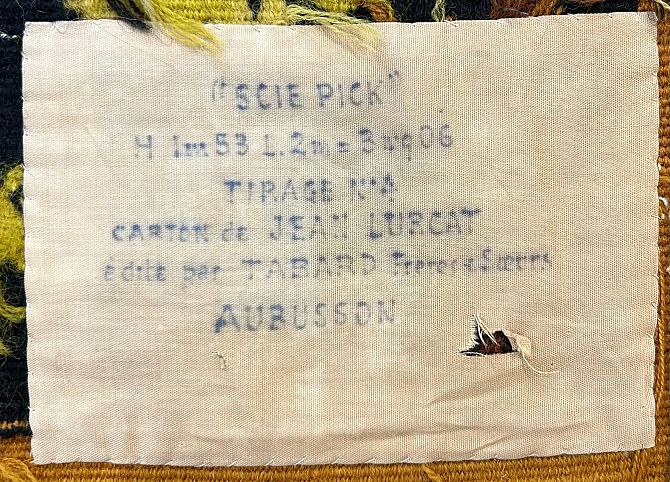 "SCIE PICK"
H 1m.53 L. 2m = 3mq06
TIRAGE N°4
CARTON de JEAN LURCAT
édité par TABARD Freres & Sœurs
AUBUSSON